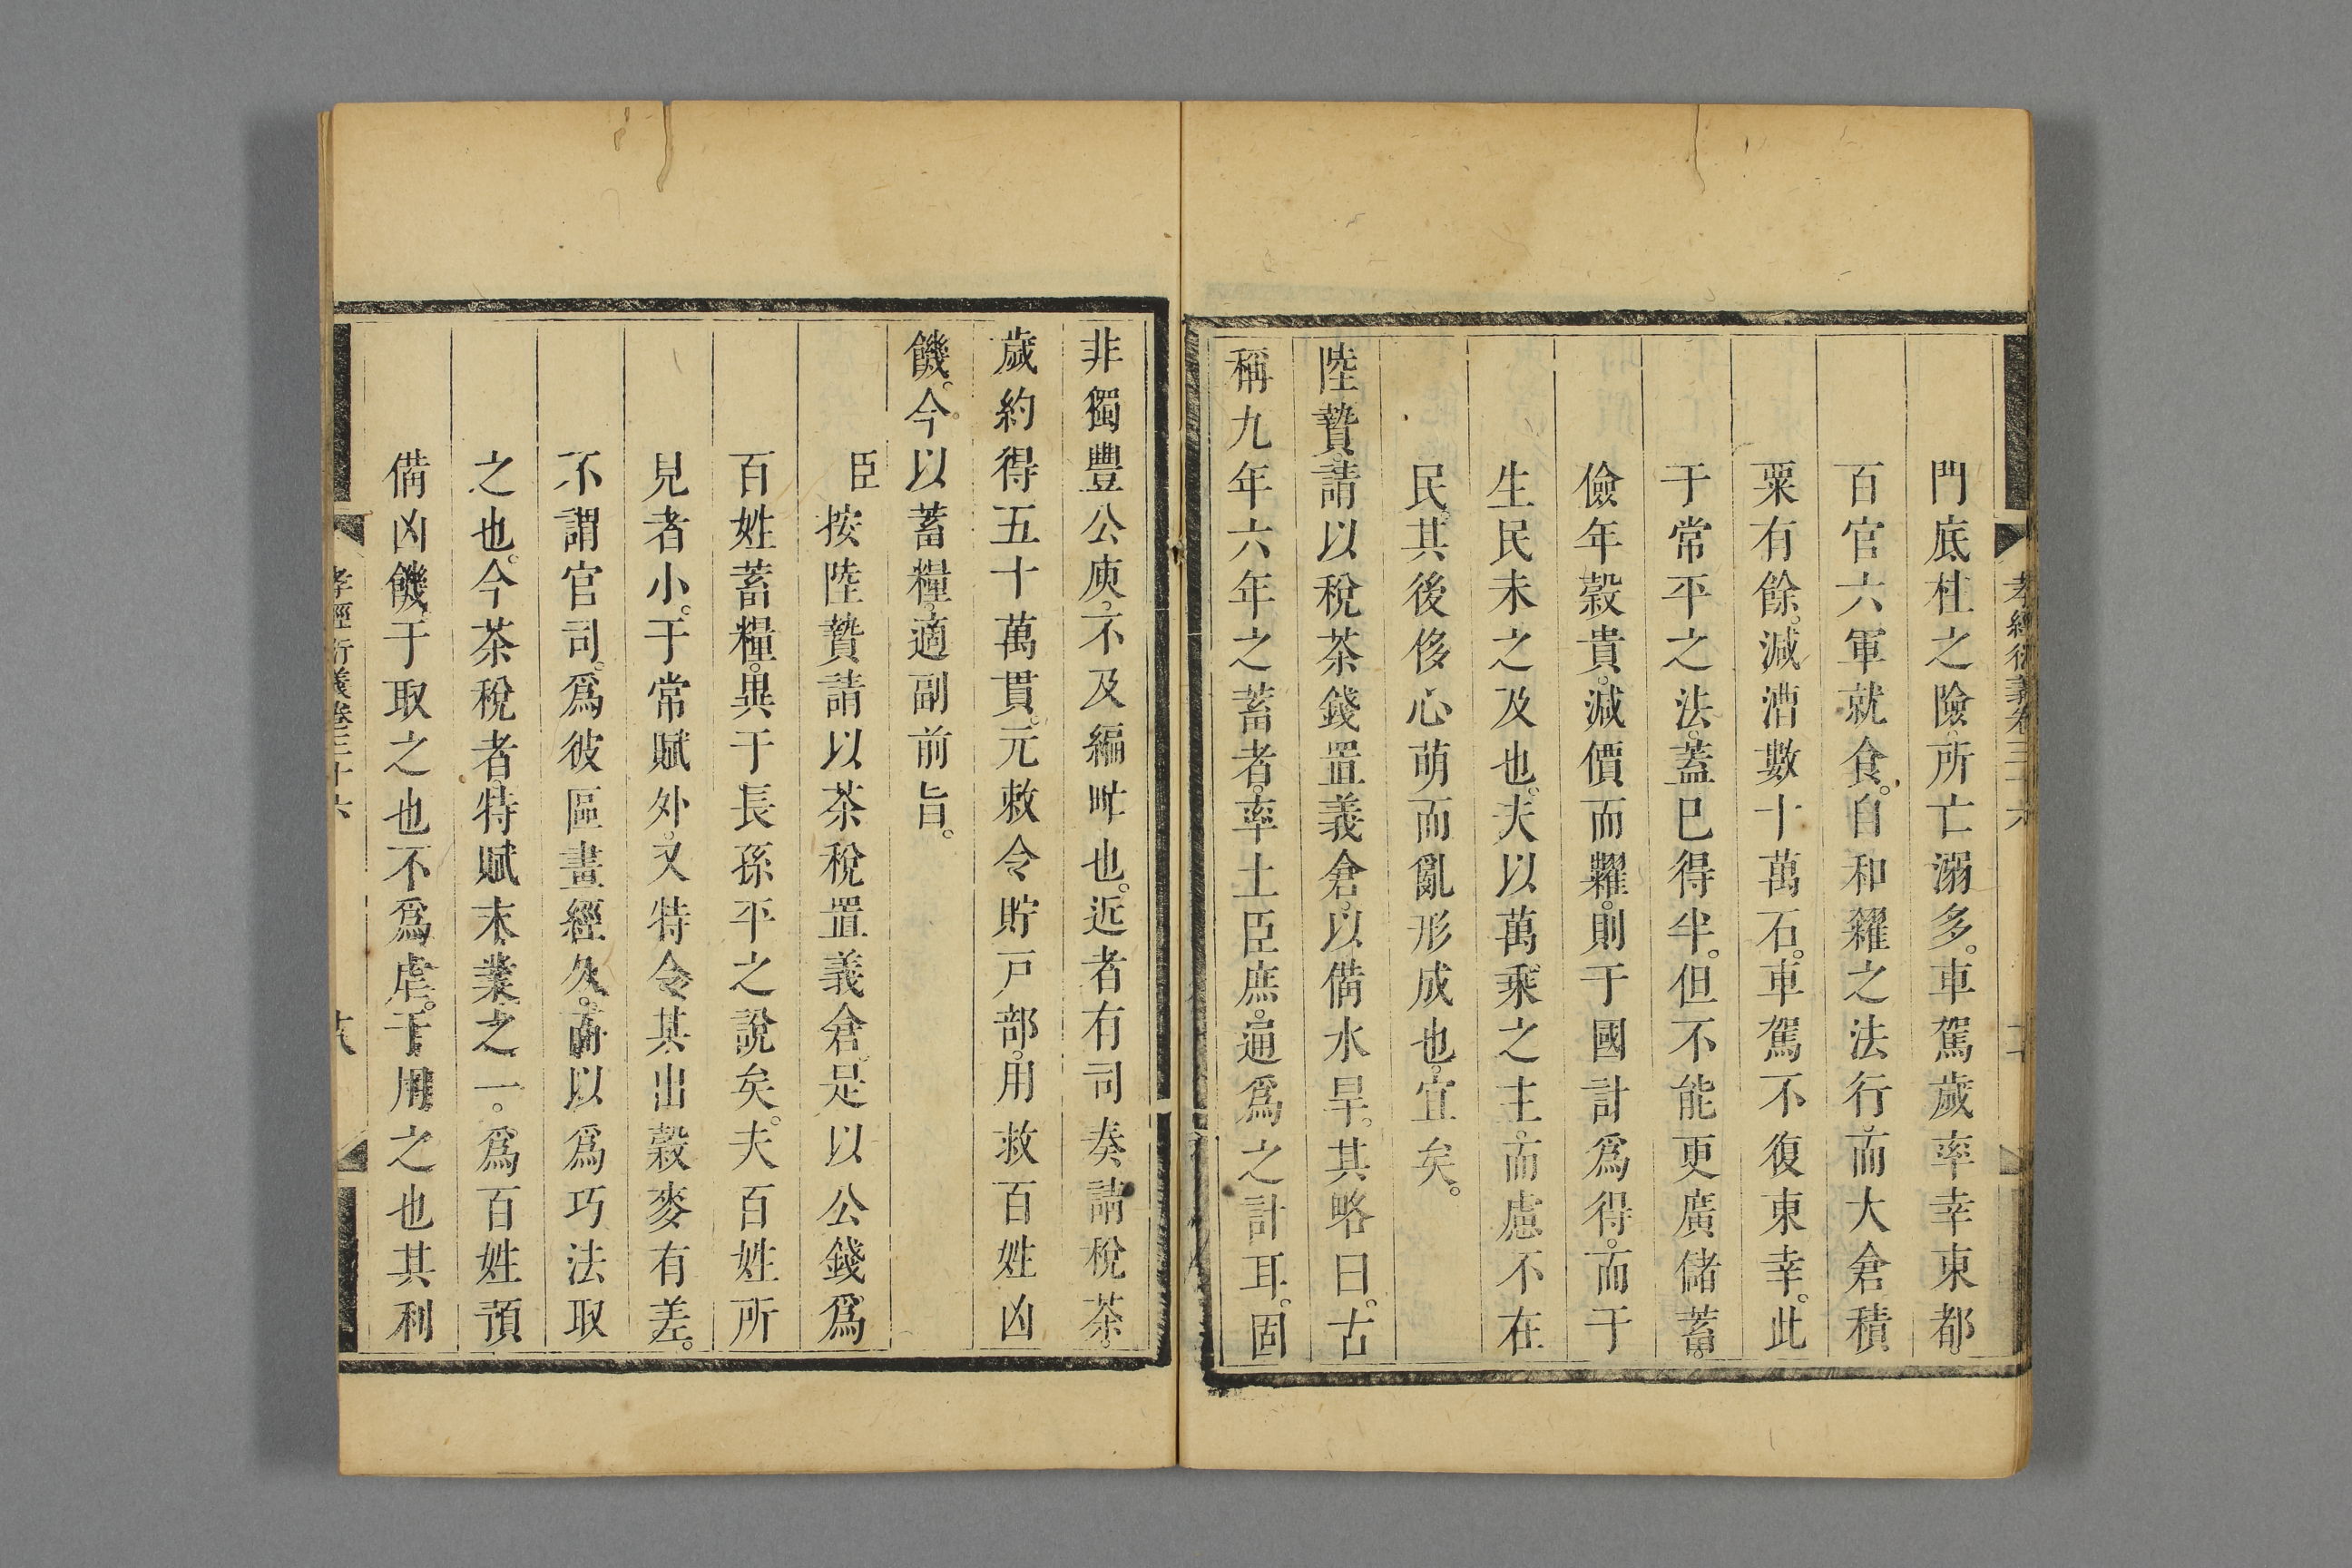 門底柱之險。所亡溺多。車駕歲率幸東都。
百官六軍就食。自和糴之法行。而大倉積
粟有餘。減漕數十萬石。車駕不復東幸。此
于常平之法。蓋已得半。但不能更廣儲蓄。
儉年穀貴。減價而糶。則于國計爲得。而于
生民未之及也。夫以萬乘之主。而慮不在
民。其後侈心萌而亂形成也。宜矣。
陸贄。請以稅茶錢置義倉。以備水旱。其略曰。古
稱九年六年之蓄者。率土臣庶。通爲之計耳。固
非獨豐公庾。不及編甿也。近者有司奏請稅茶。
歲約得五十萬貫。元敕令貯戸部。用救百姓凶
饑。今以蓄糧。適副前旨。
臣按陸贄請以茶稅置義倉。是以公錢爲
百姓蓄糧。異于長孫平之說矣。夫百姓所
見者小。于常賦外。又特令其出穀麥有差。
不謂官司。爲彼區畫經久。而以爲巧法取
之也。今茶稅者。特賦末業之一。爲百姓預
備凶饑。于取之也不爲虐。于用之也其利
孝經衍義卷三十六